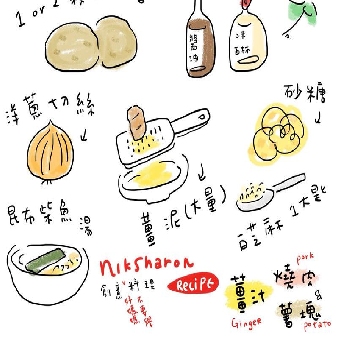 1 or 2
醬油
洋蔥切絲
砂糖
昆布柴魚湯
薑泥(大量)
芝麻 1大匙
niksharon
創意料理
RECIPE
薑汁
Ginger
燒肉
pork
&
薯塊
potato